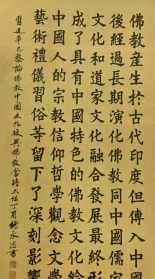 佛教產生於古代印度但傳入中國
後經過長期演化佛教同中國儒家
文化和道家文化融合發展最終形
成了具有中國特色的佛教文化給
中國人的宗教信仰哲學觀念文學
藝術禮儀習俗等留下了深刻影響